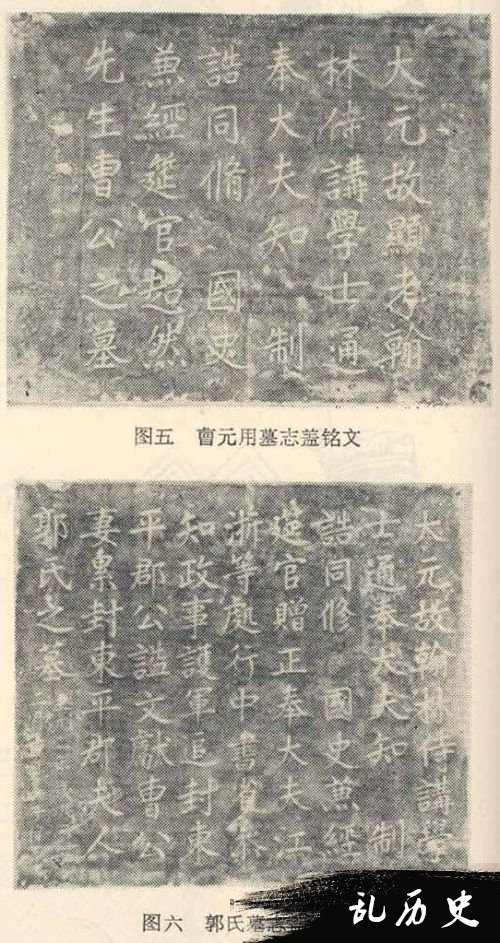 大元故顯考翰
林侍講學士通
奉大夫知 制
誥同脩 國史
兼經筵官超然
先生曹公之墓
图五 曹元用墓志盖铭文
大元故翰林侍講學
士通奉大夫知 制
誥同修 國史兼經
筵官贈正奉大夫江
浙等處行中書省參
知政事護軍追封東
平郡公謚文獻曹公
妻累封東平郡夫人
郭氏之墓
图六 郭氏墓志
乱历史